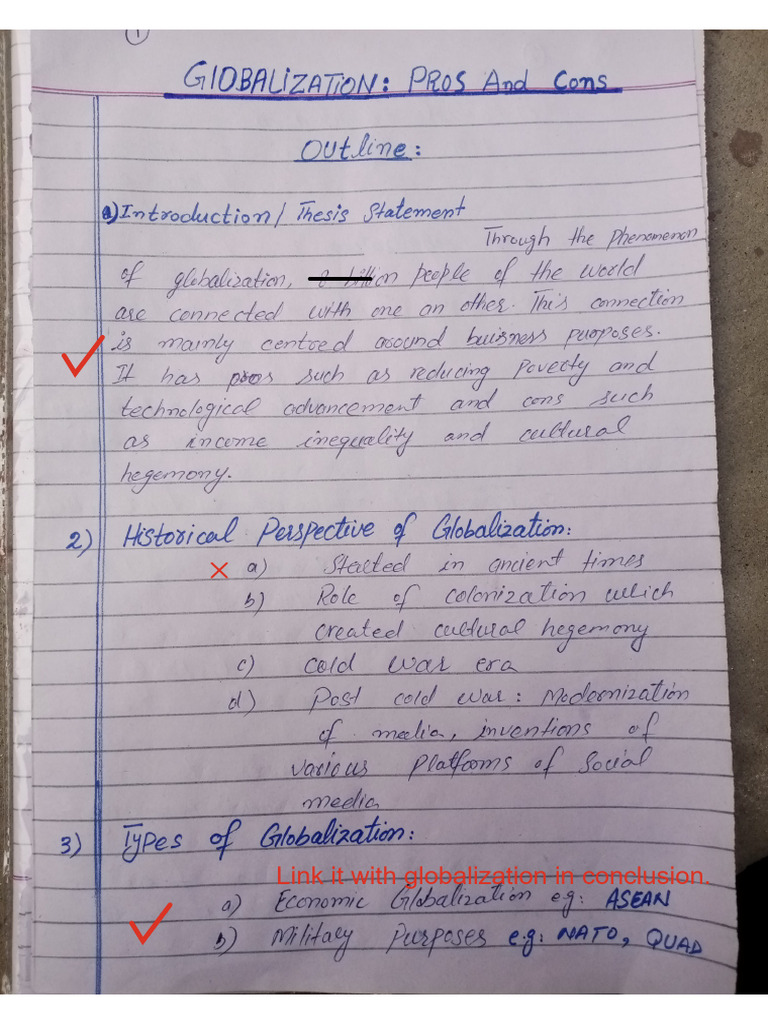 1
GlOBALIZATION: PROS And Cons
Outline:
a) Introduction/ Thesis Statement
Through the Phenomenon
of globalization, people of the world
are connected with one an other. This connection
is mainly centred around buisness purposes.
It has pros such as reducing Poverty and
technological advancement and cons such
as income inequality and cultural
hegemony.
2) Historical Perspective of Globalization:
a) Started in ancient times
b) Role of colonization which
created cultural hegemony
c) cold war era
d) Post cold war: Modernization
of media, inventions of
various Platforms of Social
media
3) Types of Globalization:
Link it with globalization in conclusion.
a) Economic Globalization e.g: ASEAN
b) Military Purposes e.g: NATO, QUAD